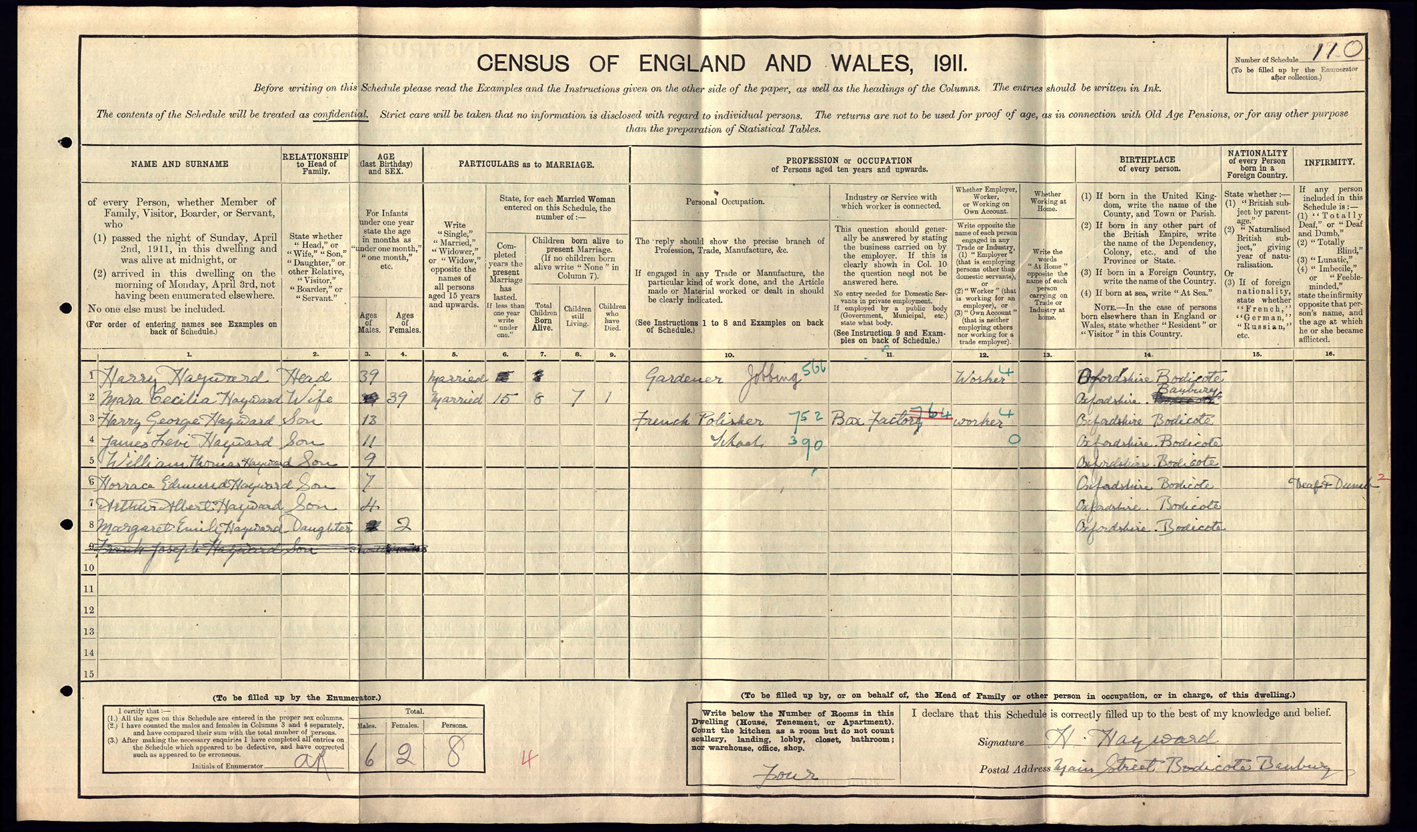 CENSUS OF ENGLAND AND WALES, 1911.
Number of Schedule 110
(To be filled up by the Enumerator after collection.)
Before writing on this Schedule please read the Examples and the Instructions given on the other side of the paper, as well as the headings of the Columns. The entries should be written in Ink.
The contents of the Schedule will be treated as confidential. Strict care will be taken that no information is disclosed with regard to individual persons. The returns are not to be used for proof of age, as in connection with Old Age Pensions, or for any other purpose
than the preparation of Statistical Tables.
NAME AND SURNAME
of every Person, whether Member of
Family, Visitor, Boarder, or Servant,
who
(1) passed the night of Sunday, April
2nd, 1911, in this dwelling and
was alive at midnight, or
(2) arrived in this dwelling on the
morning of Monday, April 3rd, not
having been enumerated elsewhere.
No one else must be included.
(For order of entering names see Examples on
back of Schedule.)
RELATIONSHIP
to Head of
Family.
State whether
"Head," or
"Wife," "Son,"
"Daughter," or
other Relative,
"Visitor,"
"Boarder," or
"Servant."
AGE
(last Birthday)
and SEX.
For Infants
under one year
state the age
in months as
"under one month,"
"one month,"
etc.
Ages
of
Males.
Ages
of
Females.
PARTICULARS as to MARRIAGE.
Write
"Single,"
"Married,"
"Widower,"
or "Widow,"
opposite the
names of
all persons
aged 15 years
and upwards.
State, for each Married Woman
entered on this Schedule, the
number of:—
Completed
years the
present
Marriage
has
lasted.
If less than
one year
write
"under
one."
Children born alive to
present Marriage.
(If no children born
alive write "None" in
Column 7).
Total
Children
Born
Alive.
Children
still
Living.
Children
who
have
Died.
PROFESSION or OCCUPATION
of Persons aged ten years and upwards.
Personal Occupation.
The reply should show the precise branch of
Profession, Trade, Manufacture, &c.
If engaged in any Trade or Manufacture, the
particular kind of work done, and the Article
made or Material worked or dealt in should
be clearly indicated.
(See Instructions 1 to 8 and Examples on back
of Schedule.)
Industry or Service with
which worker is connected.
This question should gener-
ally be answered by stating
the business carried on by
the employer. If this is
clearly shown in Col. 10
the question need not be
answered here.
No entry needed for Domestic Ser-
vants in private employment.
If employed by a public body
(Government, Municipal, etc.)
state what body.
(See Instruction 9 and Exam-
ples on back of Schedule.)
Whether Employer,
Worker,
or Working on
Own Account.
Write opposite the
name of each person
engaged in any
Trade or Industry,
(1) "Employer"
(that is employing
persons other than
domestic servants),
or
(2) "Worker" (that
is working for an
employer), or
(3) "Own Account"
(that is neither
employing others
nor working for a
trade employer).
Whether
Working at
Home.
Write the
words
"At Home"
opposite the
name of each
person
carrying on
Trade or
Industry at
home.
BIRTHPLACE
of every person.
(1) If born in the United King-
dom, write the name of the
County, and Town or Parish.
(2) If born in any other part of
the British Empire, write
the name of the Dependency,
Colony, etc., and of the
Province or State.
(3) If born in a Foreign Country,
write the name of the Country.
(4) If born at sea, write "At Sea."
NOTE.—In the case of persons
born elsewhere than in England or
Wales, state whether "Resident" or
"Visitor" in this Country.
NATIONALITY
of every Person
born in a
Foreign Country.
State whether:—
(1) "British sub-
ject by parent-
age."
(2) "Naturalised
British sub-
ject," giving
year of natu-
ralisation.
Or
(3) If of foreign
nationality,
state whether
"French,"
"German,"
"Russian,"
etc.
INFIRMITY.
If any person
included in this
Schedule is:—
(1) "Totally
Deaf," or "Deaf
and Dumb,"
(2) "Totally
Blind,"
(3) "Lunatic,"
(4) "Imbecile,"
or "Feeble-
minded,"
state the infirmity
opposite that per-
son's name, and
the age at which
he or she became
afflicted.
1. 2. 3. 4. 5. 6. 7. 8. 9. 10. 11. 12. 13. 14. 15. 16.
1 Harry Hayward Head 39 Married Gardener Jobbing 566 Worker 4 Oxfordshire Bodicote
2 Mara Cecilia Hayward Wife 39 Married 15 8 7 1 Oxfordshire. Banbury
3 Harry George Hayward Son 13 French Polisher 752 Box Factory 764 worker 4 Oxfordshire Bodicote
4 James Levi Hayward Son 11 School 390 0 Oxfordshire Bodicote
5 William Thomas Hayward Son 9 Oxfordshire Bodicote
6 Horrace Edmund Hayward Son 7 Oxfordshire Bodicote Deaf & Dumb 2
7 Arthur Albert Hayward Son 4 Oxfordshire Bodicote
8 Margaret Emili Hayward Daughter 2 Oxfordshire. Bodicote
9 Frank Joseph Hayward Son
10
11
12
13
14
15
(To be filled up by the Enumerator.)
I certify that:—
(1.) All the ages on this Schedule are entered in the proper sex columns.
(2.) I have counted the males and females in Columns 3 and 4 separately,
and have compared their sum with the total number of persons.
(3.) After making the necessary enquiries I have completed all entries on
the Schedule which appeared to be defective, and have corrected
such as appeared to be erroneous.
Initials of Enumerator
Total.
Males. Females. Persons.
6 2 8
4
(To be filled up by, or on behalf of, the Head of Family or other person in occupation, or in charge, of this dwelling.)
Write below the Number of Rooms in this
Dwelling (House, Tenement, or Apartment).
Count the kitchen as a room but do not count
scullery, landing, lobby, closet, bathroom;
nor warehouse, office, shop.
Four
I declare that this Schedule is correctly filled up to the best of my knowledge and belief.
Signature H. Hayward
Postal Address Main Street Bodicote Banbury